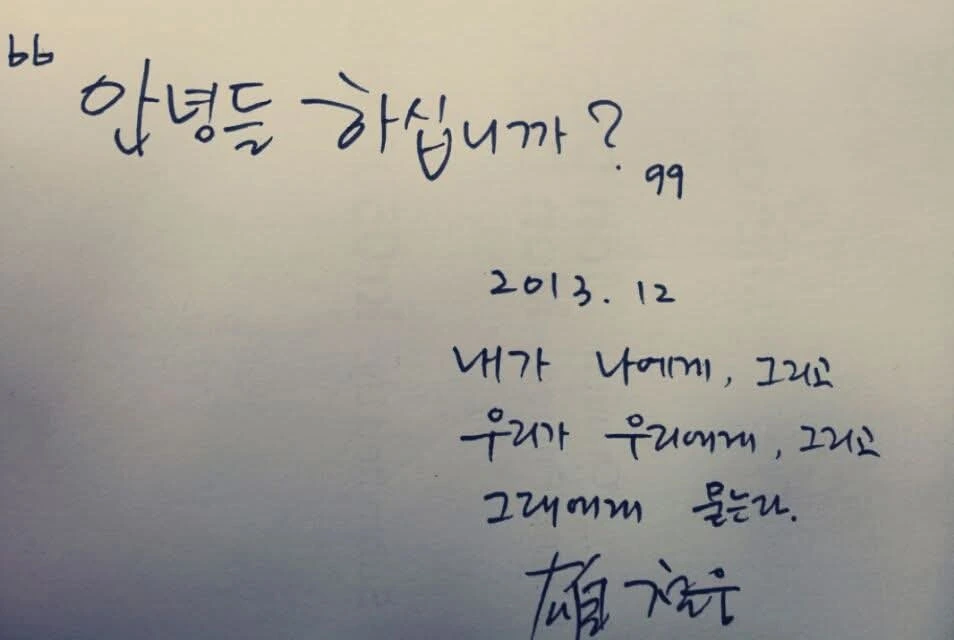 “안녕들 하십니까?”
2013. 12
내가 나에게, 그리고
우리가 우리에게, 그리고
그대에게 묻는다.
雄